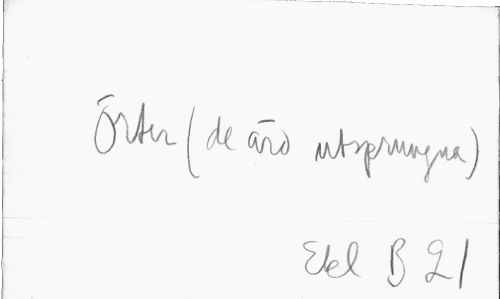 Örter (de äro utsprungna)
Ekel B 21